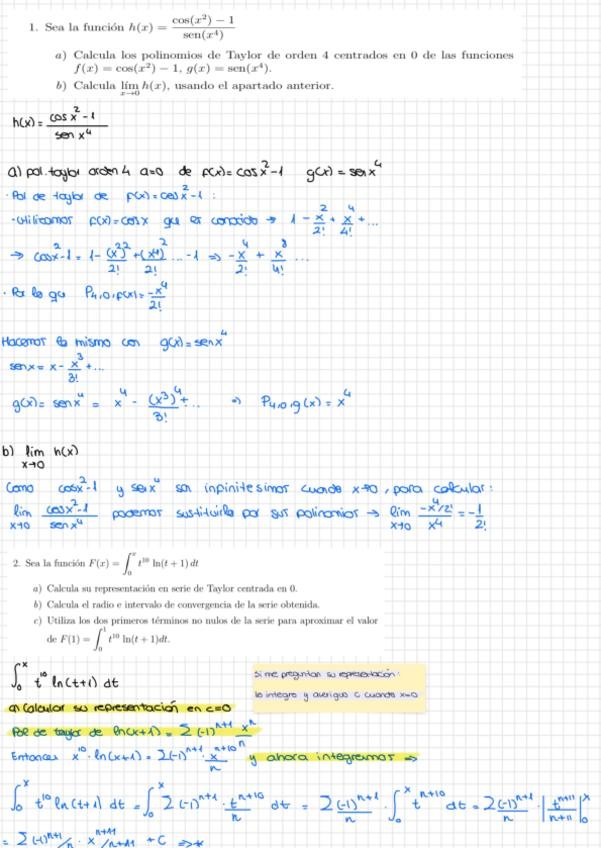 1. Sea la función h(x) = (cos(x²) − 1)/(sen(x⁴))
a) Calcula los polinomios de Taylor de orden 4 centrados en 0 de las funciones
f(x) = cos(x²) − 1, g(x) = sen(x⁴).
b) Calcula lim_{x→0} h(x), usando el apartado anterior.
h(x) = (cos x² - 1)/(sen x⁴)
a) pol. taylor orden 4 a=0 de f(x) = cos x² - 1 g(x) = sen x⁴
· Pol de taylor de f(x) = cos x² - 1 :
- Utilizamos f(x) = cos x que es conocido → 1 - x²/2! + x⁴/4! + ...
→ cos x² - 1 = 1 - (x²)²/2! + (x⁴)²/2! ... - 1 ⇒ -x⁴/2! + x⁸/4! ...
· Por lo que P₄,₀,f(x) = -x⁴/2!
Hacemos lo mismo con g(x) = sen x⁴
sen x = x - x³/3! + ...
g(x) = sen x⁴ = x⁴ - (x³)⁴/3! + ... ⇒ P₄,₀,g(x) = x⁴
b) lim_{x→0} h(x)
Como cos x² - 1 y sen x⁴ son infinitesimos cuando x→0, para calcular:
lim_{x→0} (cos x² - 1)/(sen x⁴) podemos sustituirlo por sus polinomios → lim_{x→0} (-x⁴/2!)/x⁴ = -1/2!
2. Sea la función F(x) = ∫₀ˣ t¹⁰ ln(t + 1) dt
a) Calcula su representación en serie de Taylor centrada en 0.
b) Calcula el radio e intervalo de convergencia de la serie obtenida.
c) Utiliza los dos primeros términos no nulos de la serie para aproximar el valor
de F(1) = ∫₀¹ t¹⁰ ln(t + 1)dt.
∫₀ˣ t¹⁰ ln(t+1) dt
Si me preguntan su representación:
lo integro y averiguo c cuando x=0
a) Calcular su representación en c=0
Pol de taylor de ln(x+1) = Σ (-1)ⁿ⁺¹ xⁿ/n
Entonces x¹⁰ · ln(x+1) = Σ(-1)ⁿ⁺¹ xⁿ⁺¹⁰/n y ahora integramos ⇒
∫₀ˣ t¹⁰ ln(t+1) dt = ∫₀ˣ Σ (-1)ⁿ⁺¹ · tⁿ⁺¹⁰/n dt = Σ (-1)ⁿ⁺¹/n · ∫₀ˣ tⁿ⁺¹⁰ dt = Σ (-1)ⁿ⁺¹/n · |tⁿ⁺¹¹/n+11|₀ˣ
= Σ (-1)ⁿ⁺¹/n · xⁿ⁺¹¹/n+11 + C ⇒*